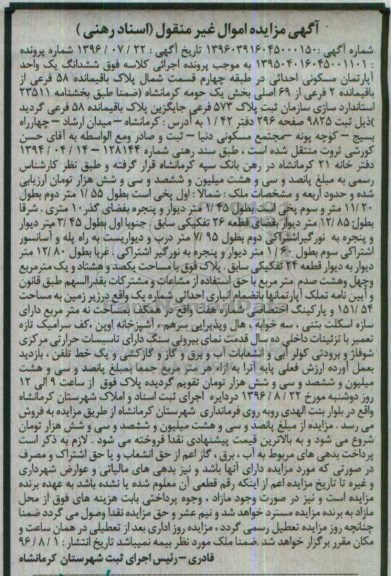 آگهی مزایده اموال غیر منقول (اسناد رهنی)
شماره آگهی: ۱۳۹۶۰۳۹۱۶۰۴۵۰۰۰۱۵۰ تاریخ آگهی: ۱۳۹۶/۰۷/۲۲ شماره پرونده
۱۳۹۵۰۴۰۱۶۰۴۵۰۰۱۱۰۱: به موجب پرونده اجرائی کلاسه فوق ششدانگ یک واحد
آپارتمان مسکونی احداثی در طبقه چهارم قسمت شمال پلاک باقیمانده ۵۸ فرعی از
باقیمانده ۲ فرعی از ۶۹ اصلی بخش یک حومه کرمانشاه (ضمنا طبق بخشنامه ۲۳۵۱۱
استاندارد سازی سازمان ثبت پلاک ۵۷۳ فرعی جایگزین پلاک باقیمانده ۵۸ فرعی گردید
)ذیل ثبت ۹۸۲۵ صفحه ۲۹۶ دفتر ۱/۴۲ به آدرس: کرمانشاه – میدان ارشاد – چهارراه
بسیج – کوچه پونه – مجتمع مسکونی دنیا – ثبت و صادر ومع الواسطه به آقای حسن
کورشی ثروت منتقل شده است، طبق سند رهنی شماره ۱۲۸۱۴۴ – ۱۳۹۴/۰۴/۱۴
دفتر خانه ۲۱ کرمانشاه در رهن بانک سپه کرمانشاه قرار گرفته و طبق نظر کارشناس
رسمی به مبلغ پانصد و سی و هشت میلیون و ششصد و سی و شش هزار تومان ارزیابی
شده و حدود اربعه و مشخصات ملک: شمالا: اول پخی است بطول ۱/۵۵ متر دوم بطول
۱۱/۲۰ متر و سوم پخی است بطول ۲/۴۵ متر دیوار و پنجره بفضای گذر ۱۰ متری. شرقا
بطول ۱۲/۸۵ متر دیوار بفضای قطعه ۲۶ تفکیکی سابق. جنوبا اول بطول ۳/۴۵ متر دیوار
و پنجره به نورگیراشتراکی دوم بطول ۷/۹۵ متر درب و دیواریست به راه پله و آسانسور
اشتراکی سوم بطول ۱/۶۰ متر دیوار و پنجره به نورگیر اشتراکی. غربا بطول ۱۲/۸۰ متر
دیوار به دیوار قطعه ۲۴ تفکیکی سابق. پلاک فوق با مساحت یکصد و هشتاد و یک مترمربع
وچهل وهشت صدم متر مربع با حق استفاده از مشاعات و مشترکات بقدرالسهم طبق قانون
و آیین نامه تملک آپارتمانها بانضمام انباری احداثی شماره یک واقع درزیر زمین به مساحت
۱۵۱/۵۴ و پارکینگ اختصاصی شماره هفت واقع در همکف بمساحت نه متر مربع دارای
سازه اسکلت بتنی، سه خوابه، هال وپذیرایی سرهم، آشپزخانه اوپن، کف سرامیک تازه
تعمیر با تزئینات داخلی ده سال قدمت نمای بیرونی سنگ دارای تاسیسات حرارتی مرکزی
شوفاژ و برودتی کولر آبی و انشعابات آب و برق و گاز و گازکشی و یک خط تلفن، بازدید
بعمل آورده ارزش فعلی پایه آنرا به ازاء هر متر مربع جمعا بمبلغ پانصد و سی و هشت
میلیون و ششصد و سی و شش هزار تومان تقویم گردیده پلاک فوق از ساعت ۹ الی ۱۲
روز دوشنبه مورخ ۱۳۹۶/۸/۲۲ دردایره اجرای ثبت اسناد و املاک شهرستان کرمانشاه
واقع در بلوار بنت الهدی روبه روی فرمانداری شهرستان کرمانشاه از طریق مزایده به فروش
می رسد. مزایده از مبلغ پانصد و سی و هشت میلیون و ششصد و سی و شش هزار تومان
شروع می شود و به بالاترین قیمت پیشنهادی نقدا فروخته می شود. لازم به ذکر است
پرداخت بدهی های مربوط به آب، برق، گاز اعم از حق انشعاب و یا حق اشتراک و مصرف
در صورتی که مورد مزایده دارای آنها باشد و نیز بدهی های مالیاتی و عوارض شهرداری
و غیره تا تاریخ مزایده اعم از اینکه رقم قطعی آن معلوم شده یا نشده باشد به عهده برنده
مزایده است و نیز در صورت وجود مازاد، وجوه پرداختی بابت هزینه های فوق از محل
مازاد به برنده مزایده مسترد خواهد شد و نیم عشر و حق مزایده نقدا وصول می گردد ضمنا
چنانچه روز مزایده تعطیل رسمی گردد، مزایده روز اداری بعد از تعطیلی در همان ساعت و
مکان مقرر برگزار خواهد شد. ضمنا ملک مورد نظر بیمه نمیباشد تاریخ انتشار: ۹۶/۸/۱
قادری – رئیس اجرای ثبت شهرستان کرمانشاه